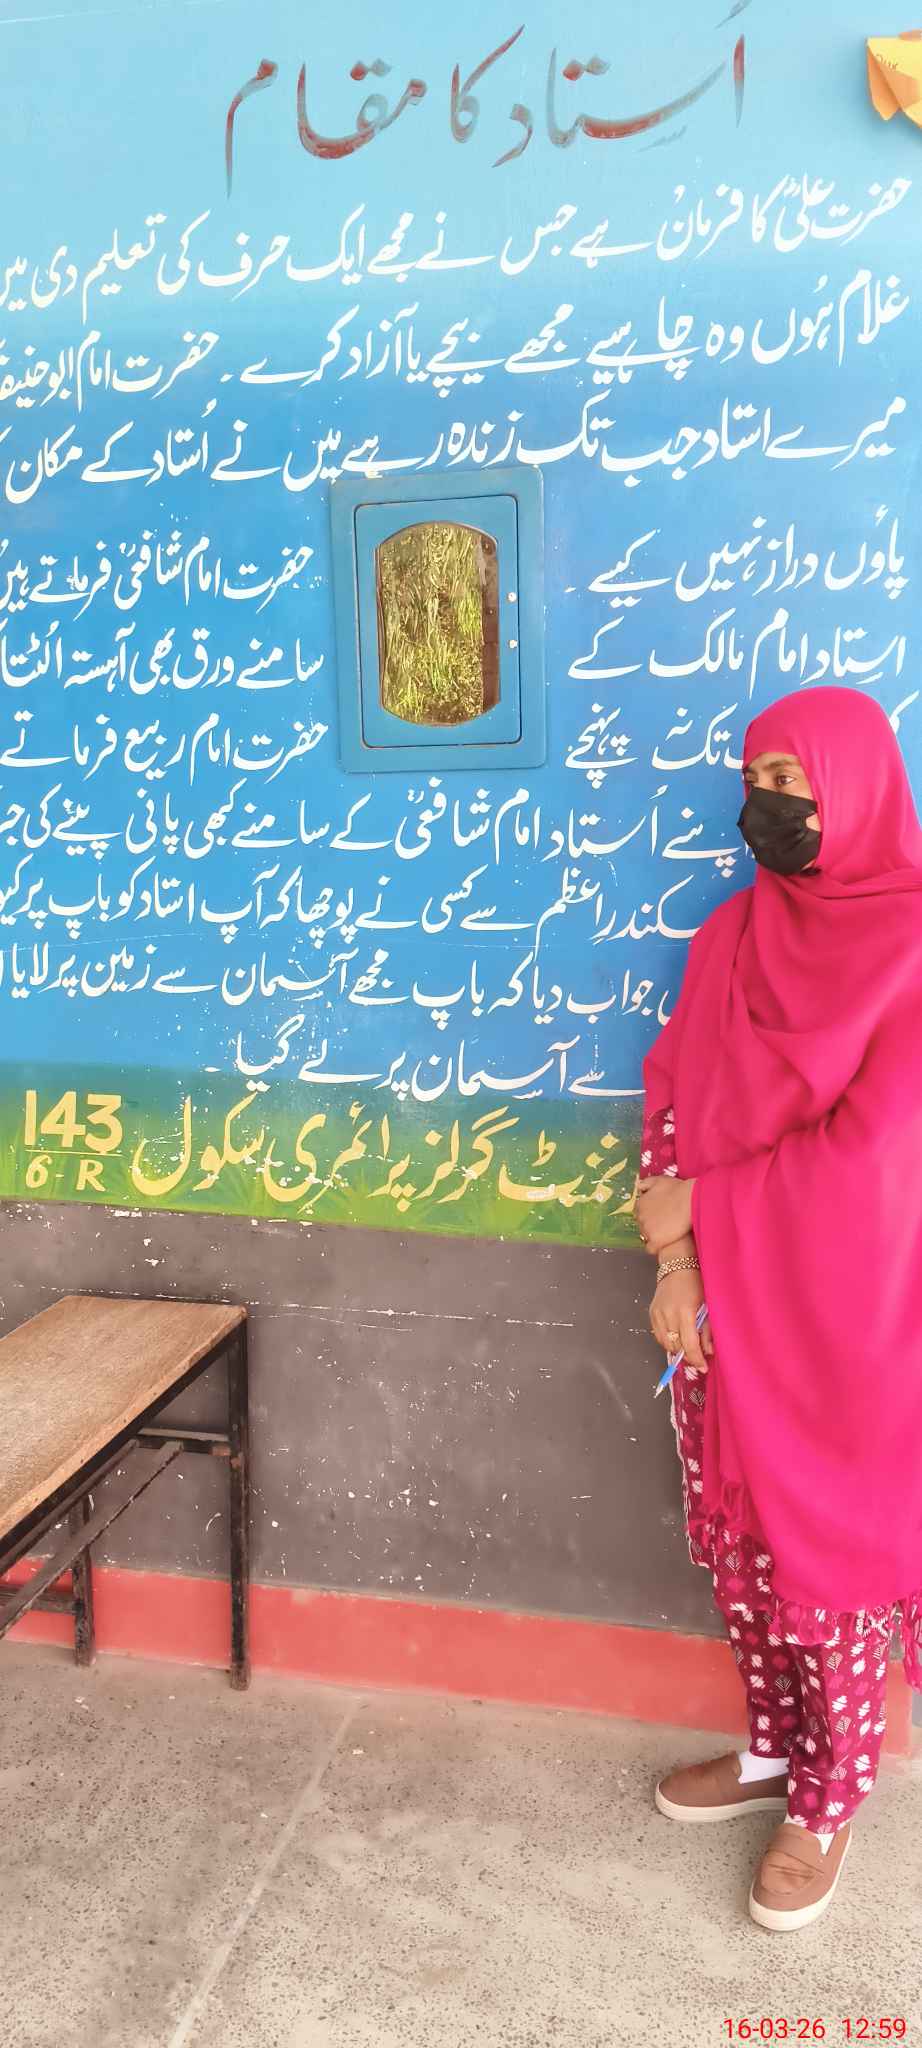 اُستاد کا مقام
حضرت علیؓ کا فرمان ہے جس نے مجھے ایک حرف کی تعلیم دی میں
غلام ہُوں وہ چاہیے مجھے بیچے یا آزاد کرے ۔ حضرت امام ابو حنیفہ
میرے استاد جب تک زندہ رہے میں نے اُستاد کے مکان
پاؤں دراز نہیں کیے ۔ حضرت امام شافعیؒ فرماتے ہیں
استاد امام مالک کے سامنے ورق بھی آہستہ اُلٹتا
تک نہ پہنچے حضرت امام ربیع فرماتے
اپنے اُستاد امام شافعیؒ کے سامنے کبھی پانی پینے کی
سکندرِ اعظم سے کسی نے پوچھا کہ آپ استاد کو باپ پر
جواب دیا کہ باپ مجھے آسمان سے زمین پر لایا
سے آسمان پر لے گیا ۔
گرلز پرائمری سکول 143
6-R
16-03-26 12:59